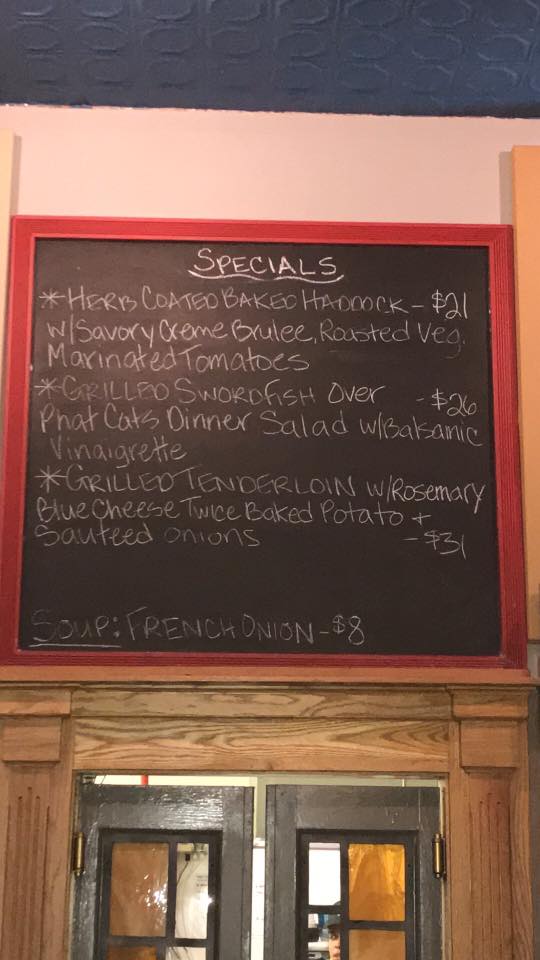 SPECIALS
*HERB COATED BAKED HADDOCK - $21
w/Savory Creme Brulee, Roasted Veg.
Marinated Tomatoes
*GRILLED SWORDFISH Over - $26
Phat Cats Dinner Salad w/Balsamic
Vinaigrette
*GRILLED TENDERLOIN w/Rosemary
Blue Cheese Twice Baked Potato +
Sauteed onions - $31
SOUP: FRENCH ONION - $8